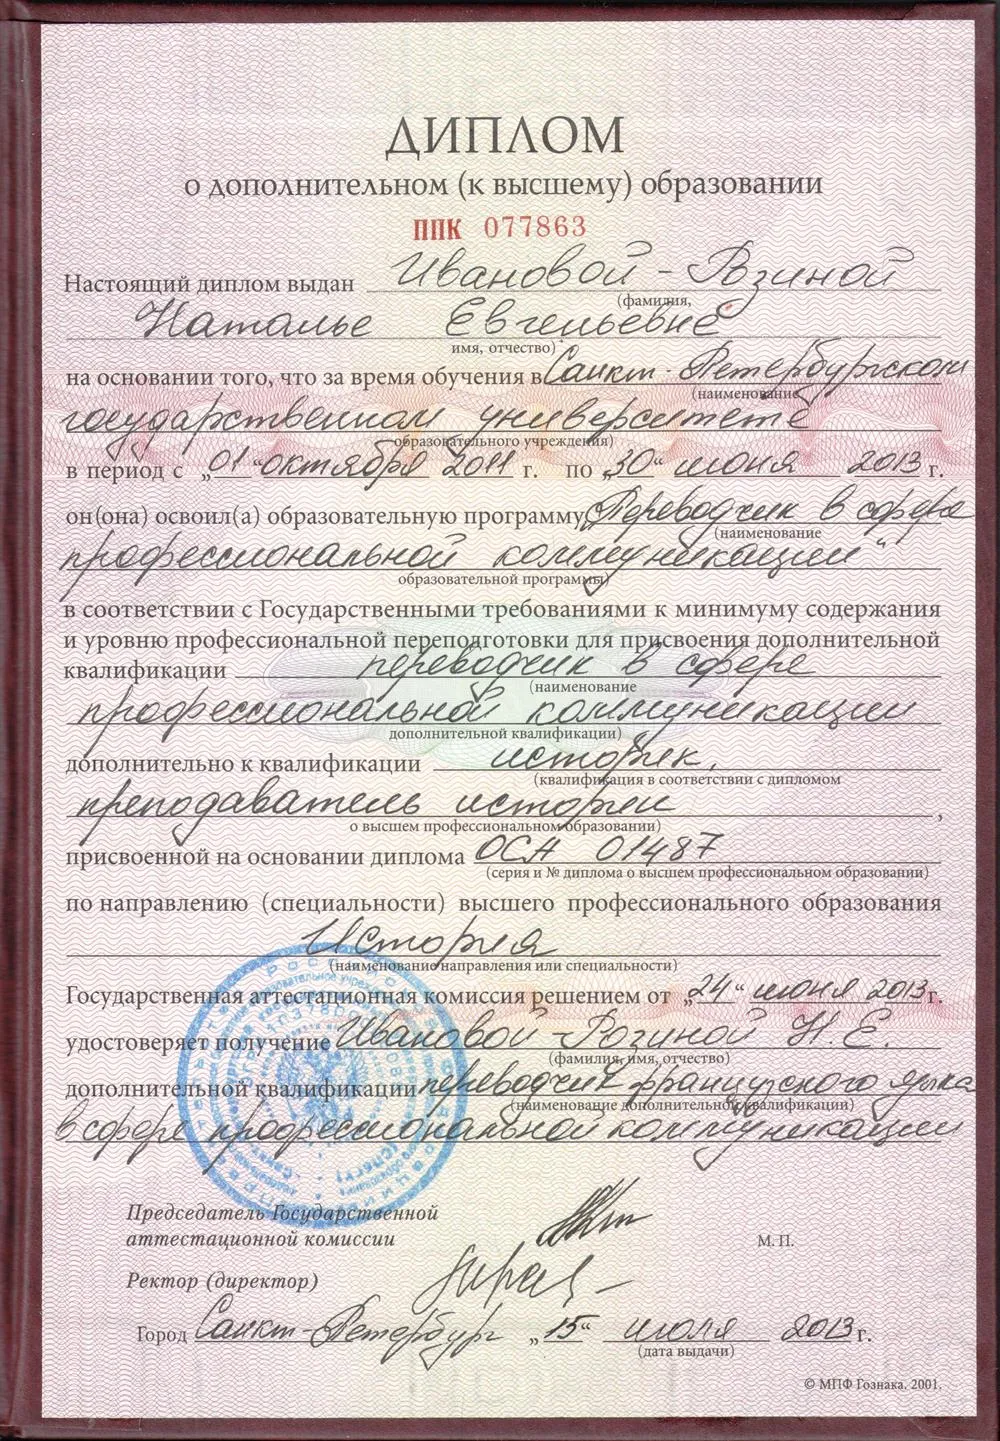 ДИПЛОМ
о дополнительном (к высшему) образовании
ППК 077863
Настоящий диплом выдан Ивановой-Розиной
(фамилия,
Наталье Евгеньевне
имя, отчество)
на основании того, что за время обучения в Санкт-Петербургском
(наименование
государственном университете
образовательного учреждения)
в период с „01“ октября 2011 г. по „30“ июня 2013 г.
он(она) освоил(а) образовательную программу „Переводчик в сфере
(наименование
профессиональной коммуникации“
образовательной программы)
в соответствии с Государственными требованиями к минимуму содержания
и уровню профессиональной переподготовки для присвоения дополнительной
квалификации переводчик в сфере
(наименование
профессиональной коммуникации
дополнительной квалификации)
дополнительно к квалификации историк,
(квалификация в соответствии с дипломом
преподаватель истории,
о высшем профессиональном образовании)
присвоенной на основании диплома ОСА 01487
(серия и № диплома о высшем профессиональном образовании)
по направлению (специальности) высшего профессионального образования
История
(наименование направления или специальности)
Государственная аттестационная комиссия решением от „24“ июня 2013 г.
удостоверяет получение Ивановой-Розиной Н.Е.
(фамилия, имя, отчество)
дополнительной квалификации переводчик французского языка
(наименование дополнительной квалификации)
в сфере профессиональной коммуникации
Председатель Государственной
аттестационной комиссии
М. П.
Ректор (директор)
Город Санкт-Петербург „15“ июля 2013 г.
(дата выдачи)
© МПФ Гознака. 2001.